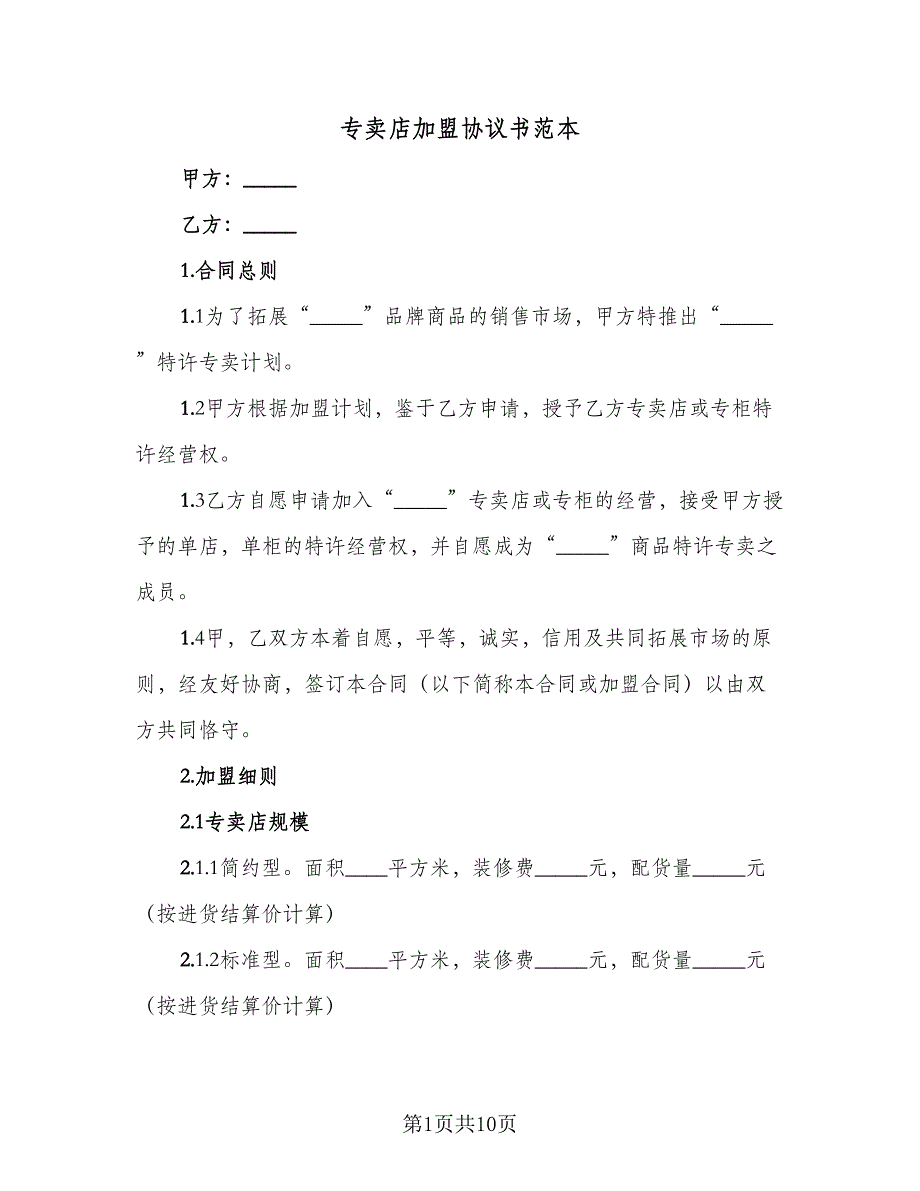 专卖店加盟协议书范本
甲方：_____
乙方：_____
1.合同总则
1.1为了拓展“_____”品牌商品的销售市场，甲方特推出“_____
”特许专卖计划。
1.2甲方根据加盟计划，鉴于乙方申请，授予乙方专卖店或专柜特
许经营权。
1.3乙方自愿申请加入“_____”专卖店或专柜的经营，接受甲方授
予的单店，单柜的特许经营权，并自愿成为“_____”商品特许专卖之
成员。
1.4甲，乙双方本着自愿，平等，诚实，信用及共同拓展市场的原
则，经友好协商，签订本合同（以下简称本合同或加盟合同）以由双
方共同恪守。
2.加盟细则
2.1专卖店规模
2.1.1简约型。面积____平方米，装修费_____元，配货量_____元
（按进货结算价计算）
2.1.2标准型。面积____平方米，装修费_____元，配货量_____元
（按进货结算价计算）
第1页共10页